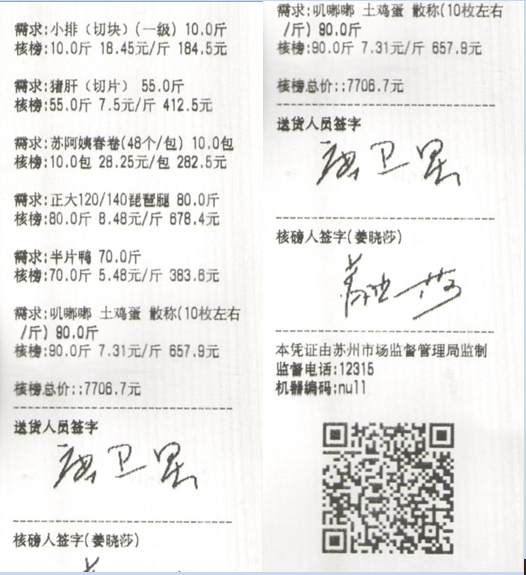 需求:小排（切块）(一级) 10.0斤
核榜:10.0斤 18.45元/斤 184.5元
需求:猪肝（切片） 55.0斤
核榜:55.0斤 7.5元/斤 412.5元
需求:苏阿姨春卷(48个/包) 10.0包
核榜:10.0包 28.25元/包 282.5元
需求:正大120/140琵琶腿 80.0斤
核榜:80.0斤 8.48元/斤 678.4元
需求:半片鸭 70.0斤
核榜:70.0斤 5.48元/斤 383.6元
需求:叽嘟嘟 土鸡蛋 散称(10枚左右
/斤) 90.0斤
核榜:90.0斤 7.31元/斤 657.9元
核榜总价::7706.7元
送货人员签字
核磅人签字(姜晓莎)
需求:叽嘟嘟 土鸡蛋 散称(10枚左右
/斤) 90.0斤
核榜:90.0斤 7.31元/斤 657.9元
核榜总价::7706.7元
送货人员签字
核磅人签字(姜晓莎)
本凭证由苏州市场监督管理局监制
监督电话:12315
机器编码:null